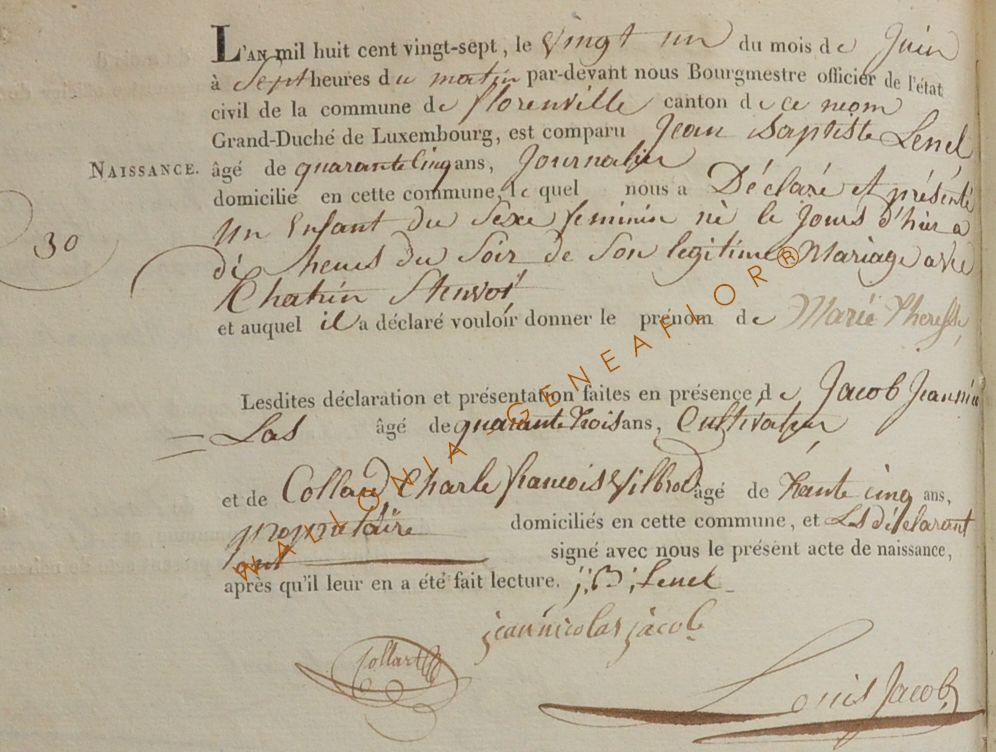 L'AN mil huit cent vingt-sept, le vingt un du mois de Juin
à Sept heures du matin par-devant nous Bourgmestre officier de l'état
civil de la commune de florenville canton de ce nom
Grand-Duché de Luxembourg, est comparu Jean Baptiste Lenel
NAISSANCE. âgé de quarante Cinq ans, Journalier
domicilié en cette commune, le quel nous a Déclaré et présenté
30
un Enfant du Sexe feminin né le Jours d'hier a
dix heures du Soir de Son legitime Mariage avec
Chatrin
et auquel il a déclaré vouloir donner le prénom de Marie Theresse
Lesdites déclaration et présentation faites en présence de Jacob Jeannico
Las âgé de quarante trois ans, Cultivateur
et de Collard Charle francois Wilbrod âgé de trente cinq ans,
propriétaire domiciliés en cette commune, et Les déclarant
ont signé avec nous le présent acte de naissance,
après qu'il leur en a été fait lecture. j; B; Lenel
jean nicolas jacob
Collart
Louis Jacob
WALLONIA - GENEAFLOR ®